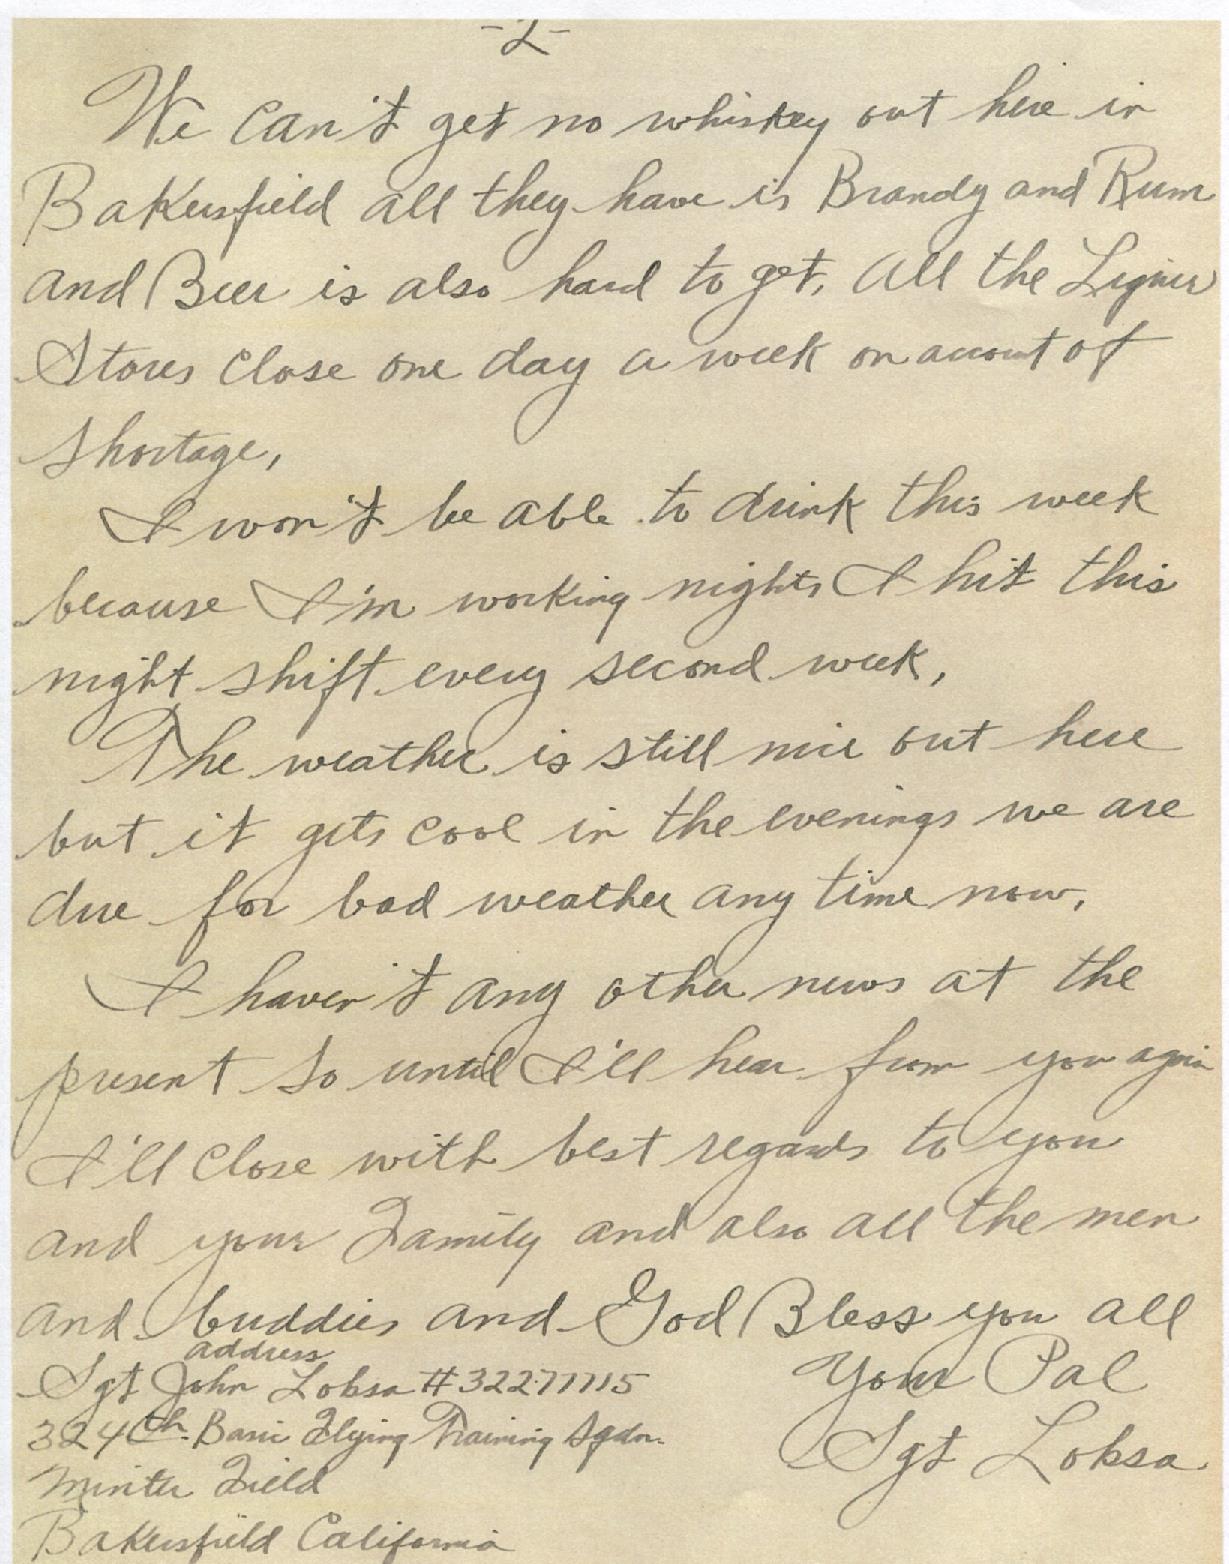 -2-
We can't get no whiskey out here in
Bakersfield all they have is Brandy and Rum
and Beer is also hard to get, all the Liquir
Stores close one day a week on account of
shortage,
I won't be able to drink this week
because I'm working nights I hit this
night shift every second week,
The weather is still nice out here
but it gets cool in the evenings we are
due for bad weather any time now,
I haven't any other news at the
present so until I'll hear from you again
I'll close with best regards to you
and your Family and also all the men
and buddies and God Bless you all
address
Your Pal
Sgt John Lobsa #32277115
324th Basic Flying Training Sqdn.
Sgt Lobsa
Minter Field
Bakersfield California